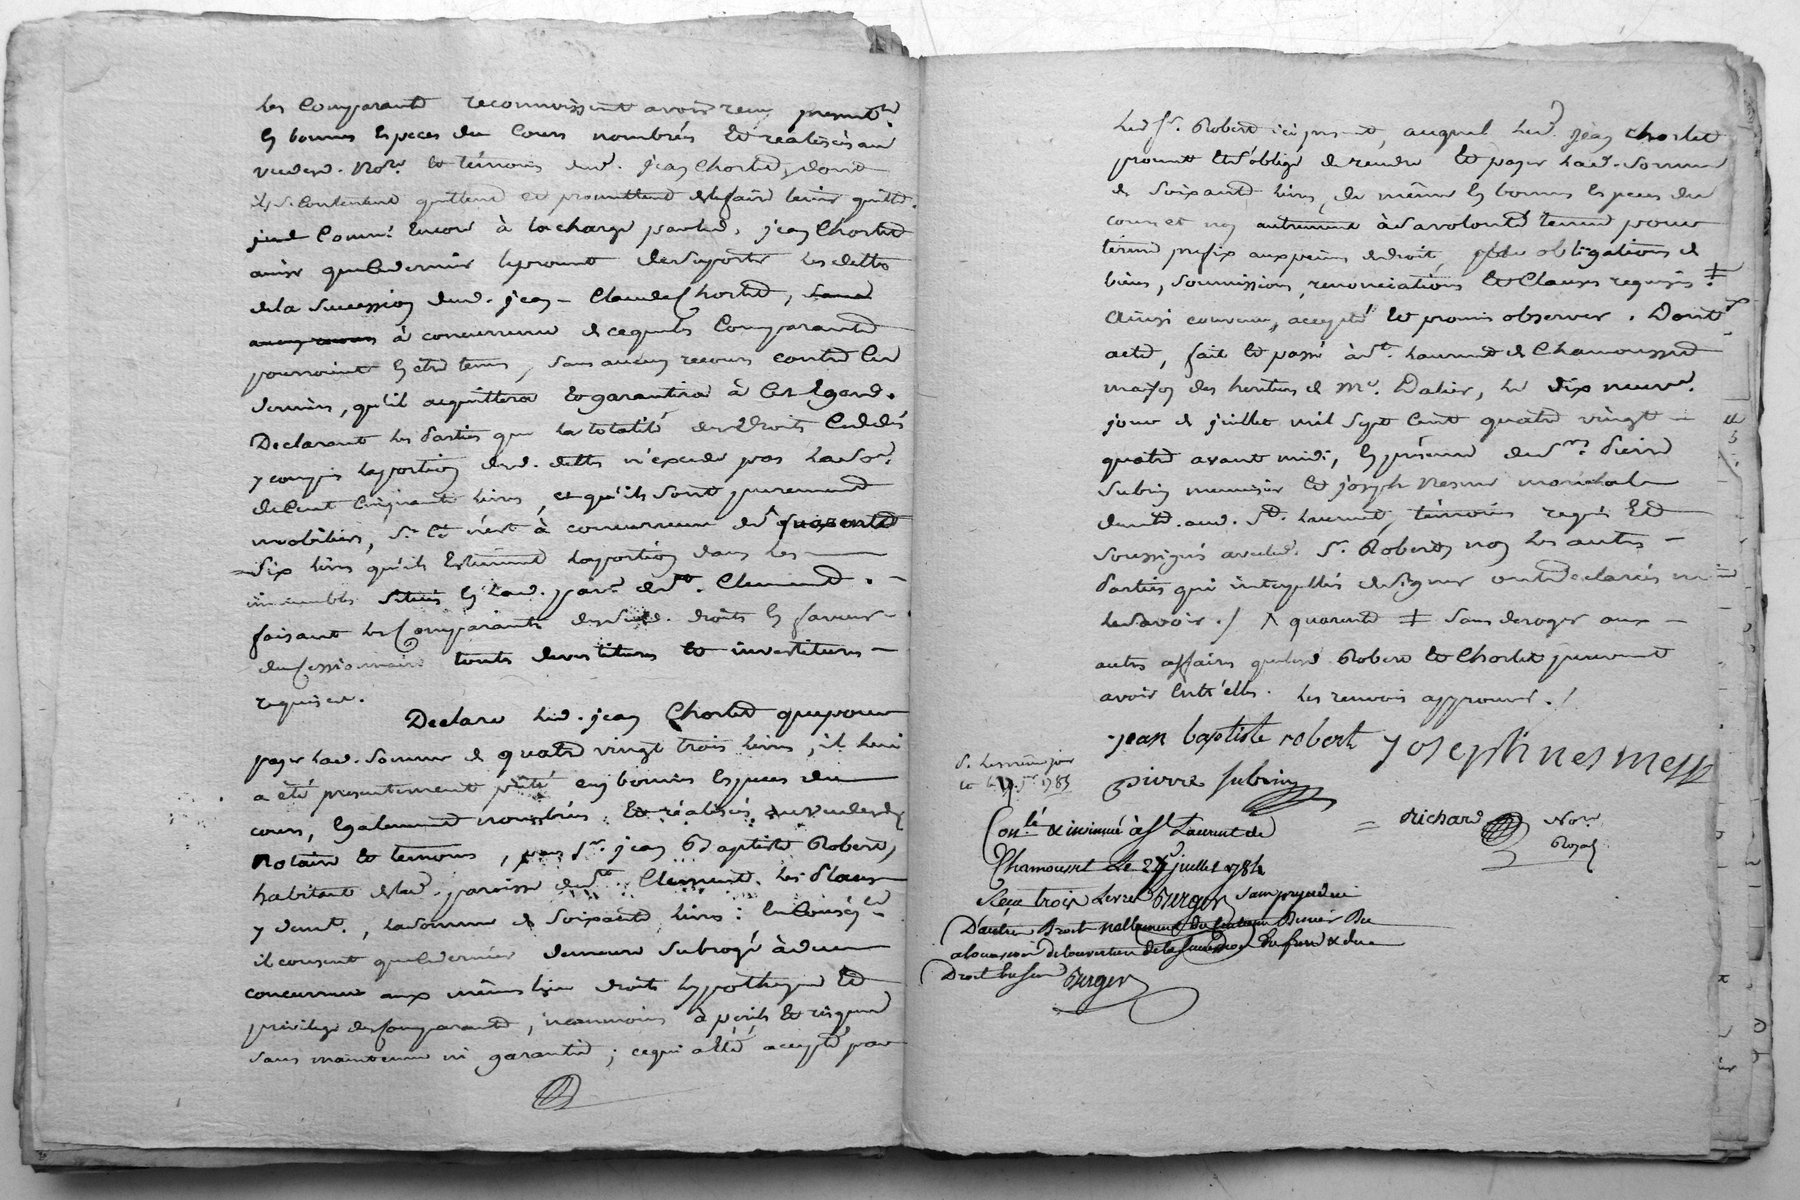 les Comparants reconnoissent avoir reçu presentt.
en bonnes Especes du Cours nombrés Et réalisés au
vu desd. Nore. Et témoins dud. jean Chorlet, dont
ils se Contentent quittent et promettent de le faire tenir quitte.
Comme Encore à la charge par led. jean Chorlet
ainsi que le dernier le promet de suporter les dettes
de la sucession dud. jean-Claude Chorlet,
à concurrence de ce que les Comparants
pourroient en être tenus, sans aucun recours contre les
derniers, qu'il acquittera Et garantira à cet Egard.
Declarant les Parties que la totalité des Droits Ceddés
y compris la portion desd. dettes n'excede pas la so.
de Cent Cinquante livres, et qu'ils sont purement
mobiliers, si Ce n'est à concurrence de ^ quarente
six livres qu'ils Estiment la portion dans les
immeubles situés en lad. parr. de St. Clement.
faisant les Comparants desd. droits en faveur
du Cessionnaire toutes devestitures et investitures
requises.
Declare led. jean Chorlet que pour
payer lad. somme de quatre vingt trois livres, il lui
a été presentement prêté en bonnes Especes du
cours, Egalement nombrées Et réalisées au vu desd
Notaire Et temoins, par Sr. jean Baptiste Robert,
habitant de lad. paroisse de St. Clement. les Places
y demt., la somme de soixante livres : En Conséq.ce
il consent que le dernier demeure subrogé à due
concurrence aux mêmes lieu droits hypotheque Et
privilege des Comparants, neanmoins à perils Et risques
sans maintenue ni garantie ; ce qui a Eté accepté par
led Sr. Robert ici present, auquel led. jean Chorlet
promet Et s'oblige de rendre Et payer lad. somme
de soixante livres, de même en bonnes Especes du
cours et non autrement à sa volonté tenue pour
terme prefix aux peines de droit, obligations de
biens, soumissions, renonciations Et Clauses requises ‡
Ainsi convenu, accepté Et promis observer. Dont
acte, fait Et passé à St. Laurent de Chamousset
maison des heritiers de Me. Dalier, le dix neuve.
jour de juillet mil sept Cent quatre vingt
quatre avant midi, En présence de Srs. Pierre
Subrin menuisier Et joseph Nesme marechal
demt. aud. St. Laurent, témoins requis Et
soussignés avec led. Sr. Robert, non les autres
Parties qui interpellés de signer ont declarés ne
le savoir ./ ^ quarente ‡ sans deroger aux
autres affaires que lesd Robert Et Chorlet peuvent
avoir Entr'elles. les renvois approuvés./
jean baptiste robert josephnesmess
pierre subrin
= Richard Nore
Royal
Conlé & insinué à St Laurent de
Chamousset Le juillet 1784
Reçu trois Livres Berger sans prejudice
D'autre Droit
a l'occasion De l'ouverture de la succession
Droit Berger